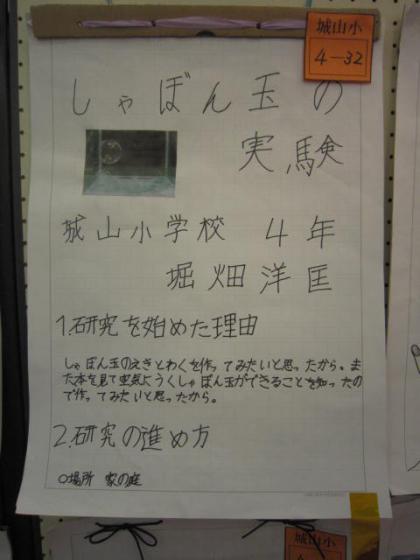 城山小
4-32
しゃぼん玉の
実験
城山小学校 4年
堀畑洋匡
1.研究を始めた理由
しゃぼん玉のえきとわくを作ってみたいと思ったから。ま
た本を見て空気ようくしゃぼん玉ができることを知ったの
で作ってみたいと思ったから。
2.研究の進め方
○場所 家の庭
城山小